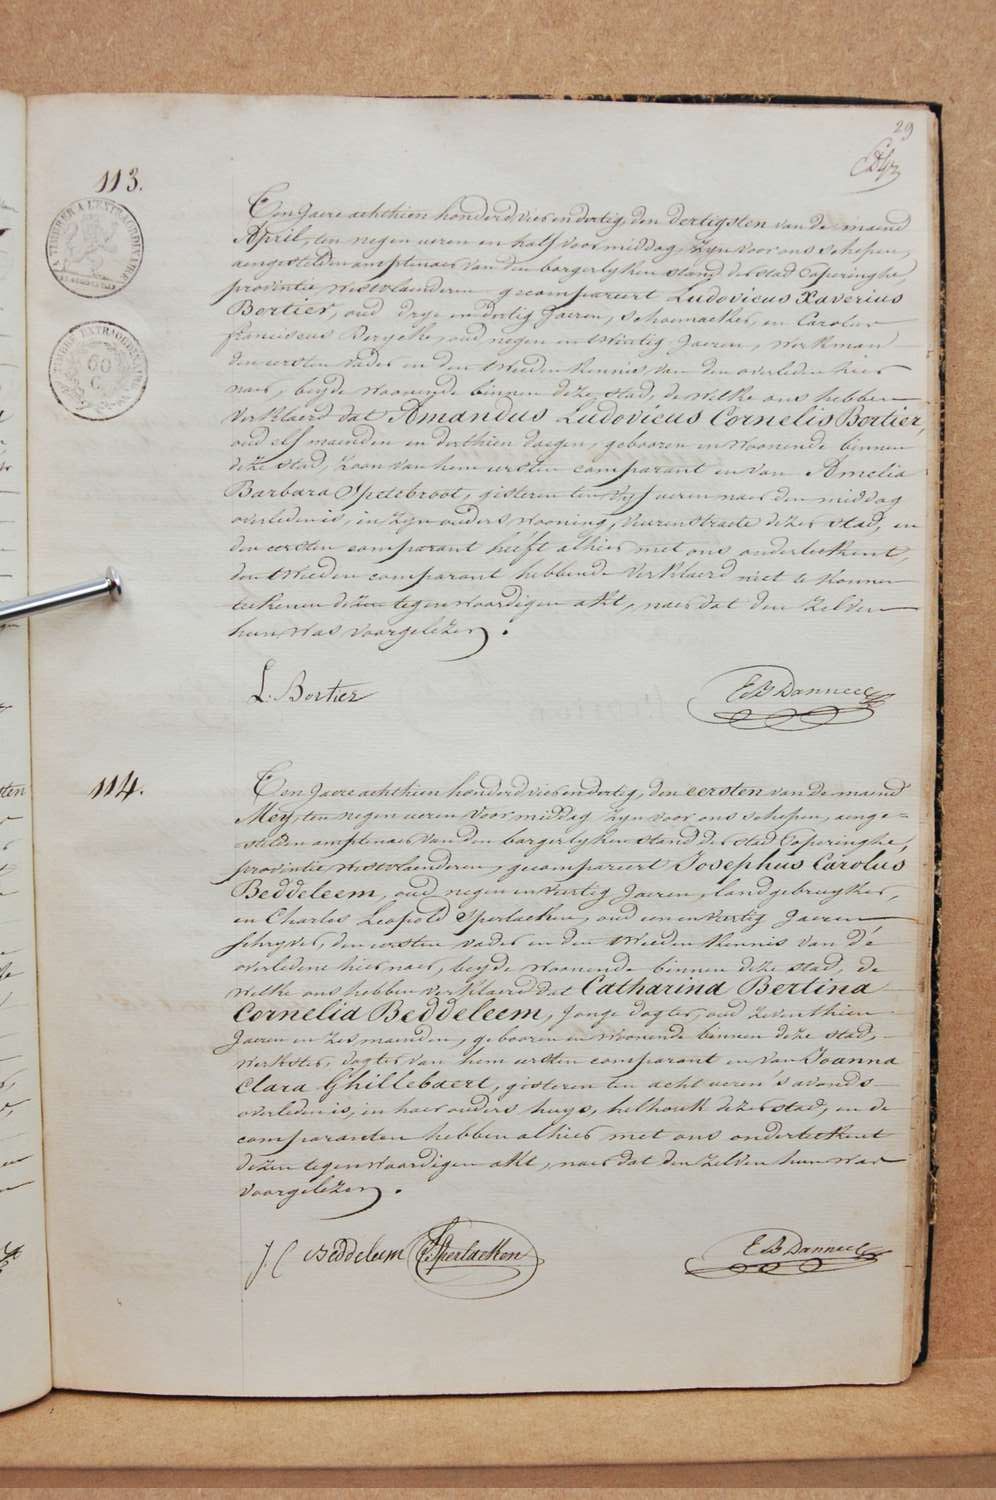 29
113.
A TIMBRER A L'EXTRAORDINAIRE
TIMBRE EXTRAORDINAIRE
60
C.
Een Jaere achthien honderd vier en dertig, den dertigsten van de maend
April, ten negen ueren en half voormiddag, zyn voor ons schepen,
aengestelden amptenaer van den borgerlyken stand der stad Poperinghe,
provintie westvlaenderen gecompareert Ludovicus Xaverius
Bortier, oud drye en dertig Jaeren, schoemaeker, en Carolus
franciscus Berycke, oud negen en twintig Jaeren, werkman
den eersten vader en den tweeden kennis van den overleden hier
naer, beyde woonende binnen deze stad, de welke ons hebben
verklaerd dat Amandus Ludovicus Cornelis Bortier,
oud elf maenden en derthien daegen, gebooren en woonende binnen
deze stad, zoon van hem eersten comparant en van Amelia
Barbara Spetebroot, gisteren ten vyf ueren naer den middag
overleden is, in zyn ouders wooning, veurenstraete dezer stad, en
den eersten comparant heeft alhier met ons onderteekent,
den tweeden comparant hebbende verklaerd niet te konnen
teekenen dezen tegenwoordigen akt, naer dat den zelven
hun was voorgelezen.
L. Bortier
114.
Een Jaere achthien honderd vier en dertig, den eersten van de maend
Mey, ten negen ueren voormiddag zyn voor ons schepen, aenge=
stelden amptenaer van den borgerlyken stand der stad Poperinghe,
provintie westvlaenderen, gecompareert Josephus Carolus
Beddeleem, oud negen en veertig Jaeren, landgebruyker,
en Charles Leopold Sperlaeken, oud een en veertig Jaeren
schryver, den eersten vader en den tweeden kennis van de
overledene hier naer, beyde woonende binnen deze stad, de
welke ons hebben verklaerd dat Catharina Bertina
Cornelia Beddeleem, Jonge dogter, oud zeventhien
Jaeren en zes maenden, gebooren en woonende binnen deze stad,
werkster, dogter van hem eersten comparant en van Joanna
Clara Ghillebaert, gisteren ten acht ueren 's avonds
overleden is, in haer ouders huys, helhoek dezer stad, en de
comparanten hebben alhier met ons onderteekent
dezen tegenwoordigen akt, naer dat den zelven hun was
voorgelezen.
J. C Beddeleem Sperlaeken